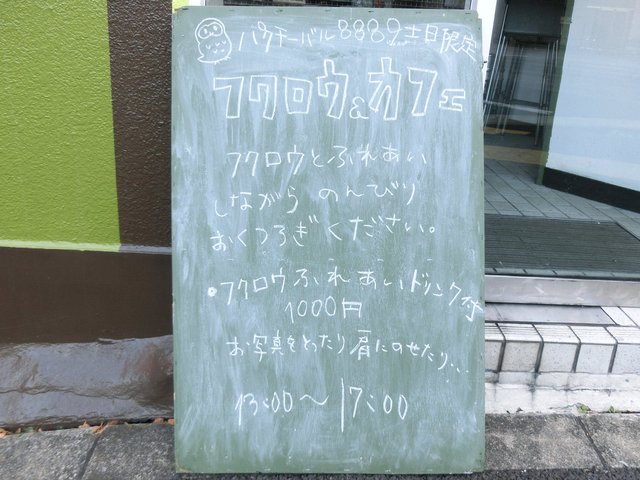 パクチーバル8889土日限定
フクロウ&カフェ
フクロウとふれあい
しながら のんびり
おくつろぎください。
•フクロウふれあいドリンク付
1000円
お写真をとったり肩にのせたり...
13:00〜17:00